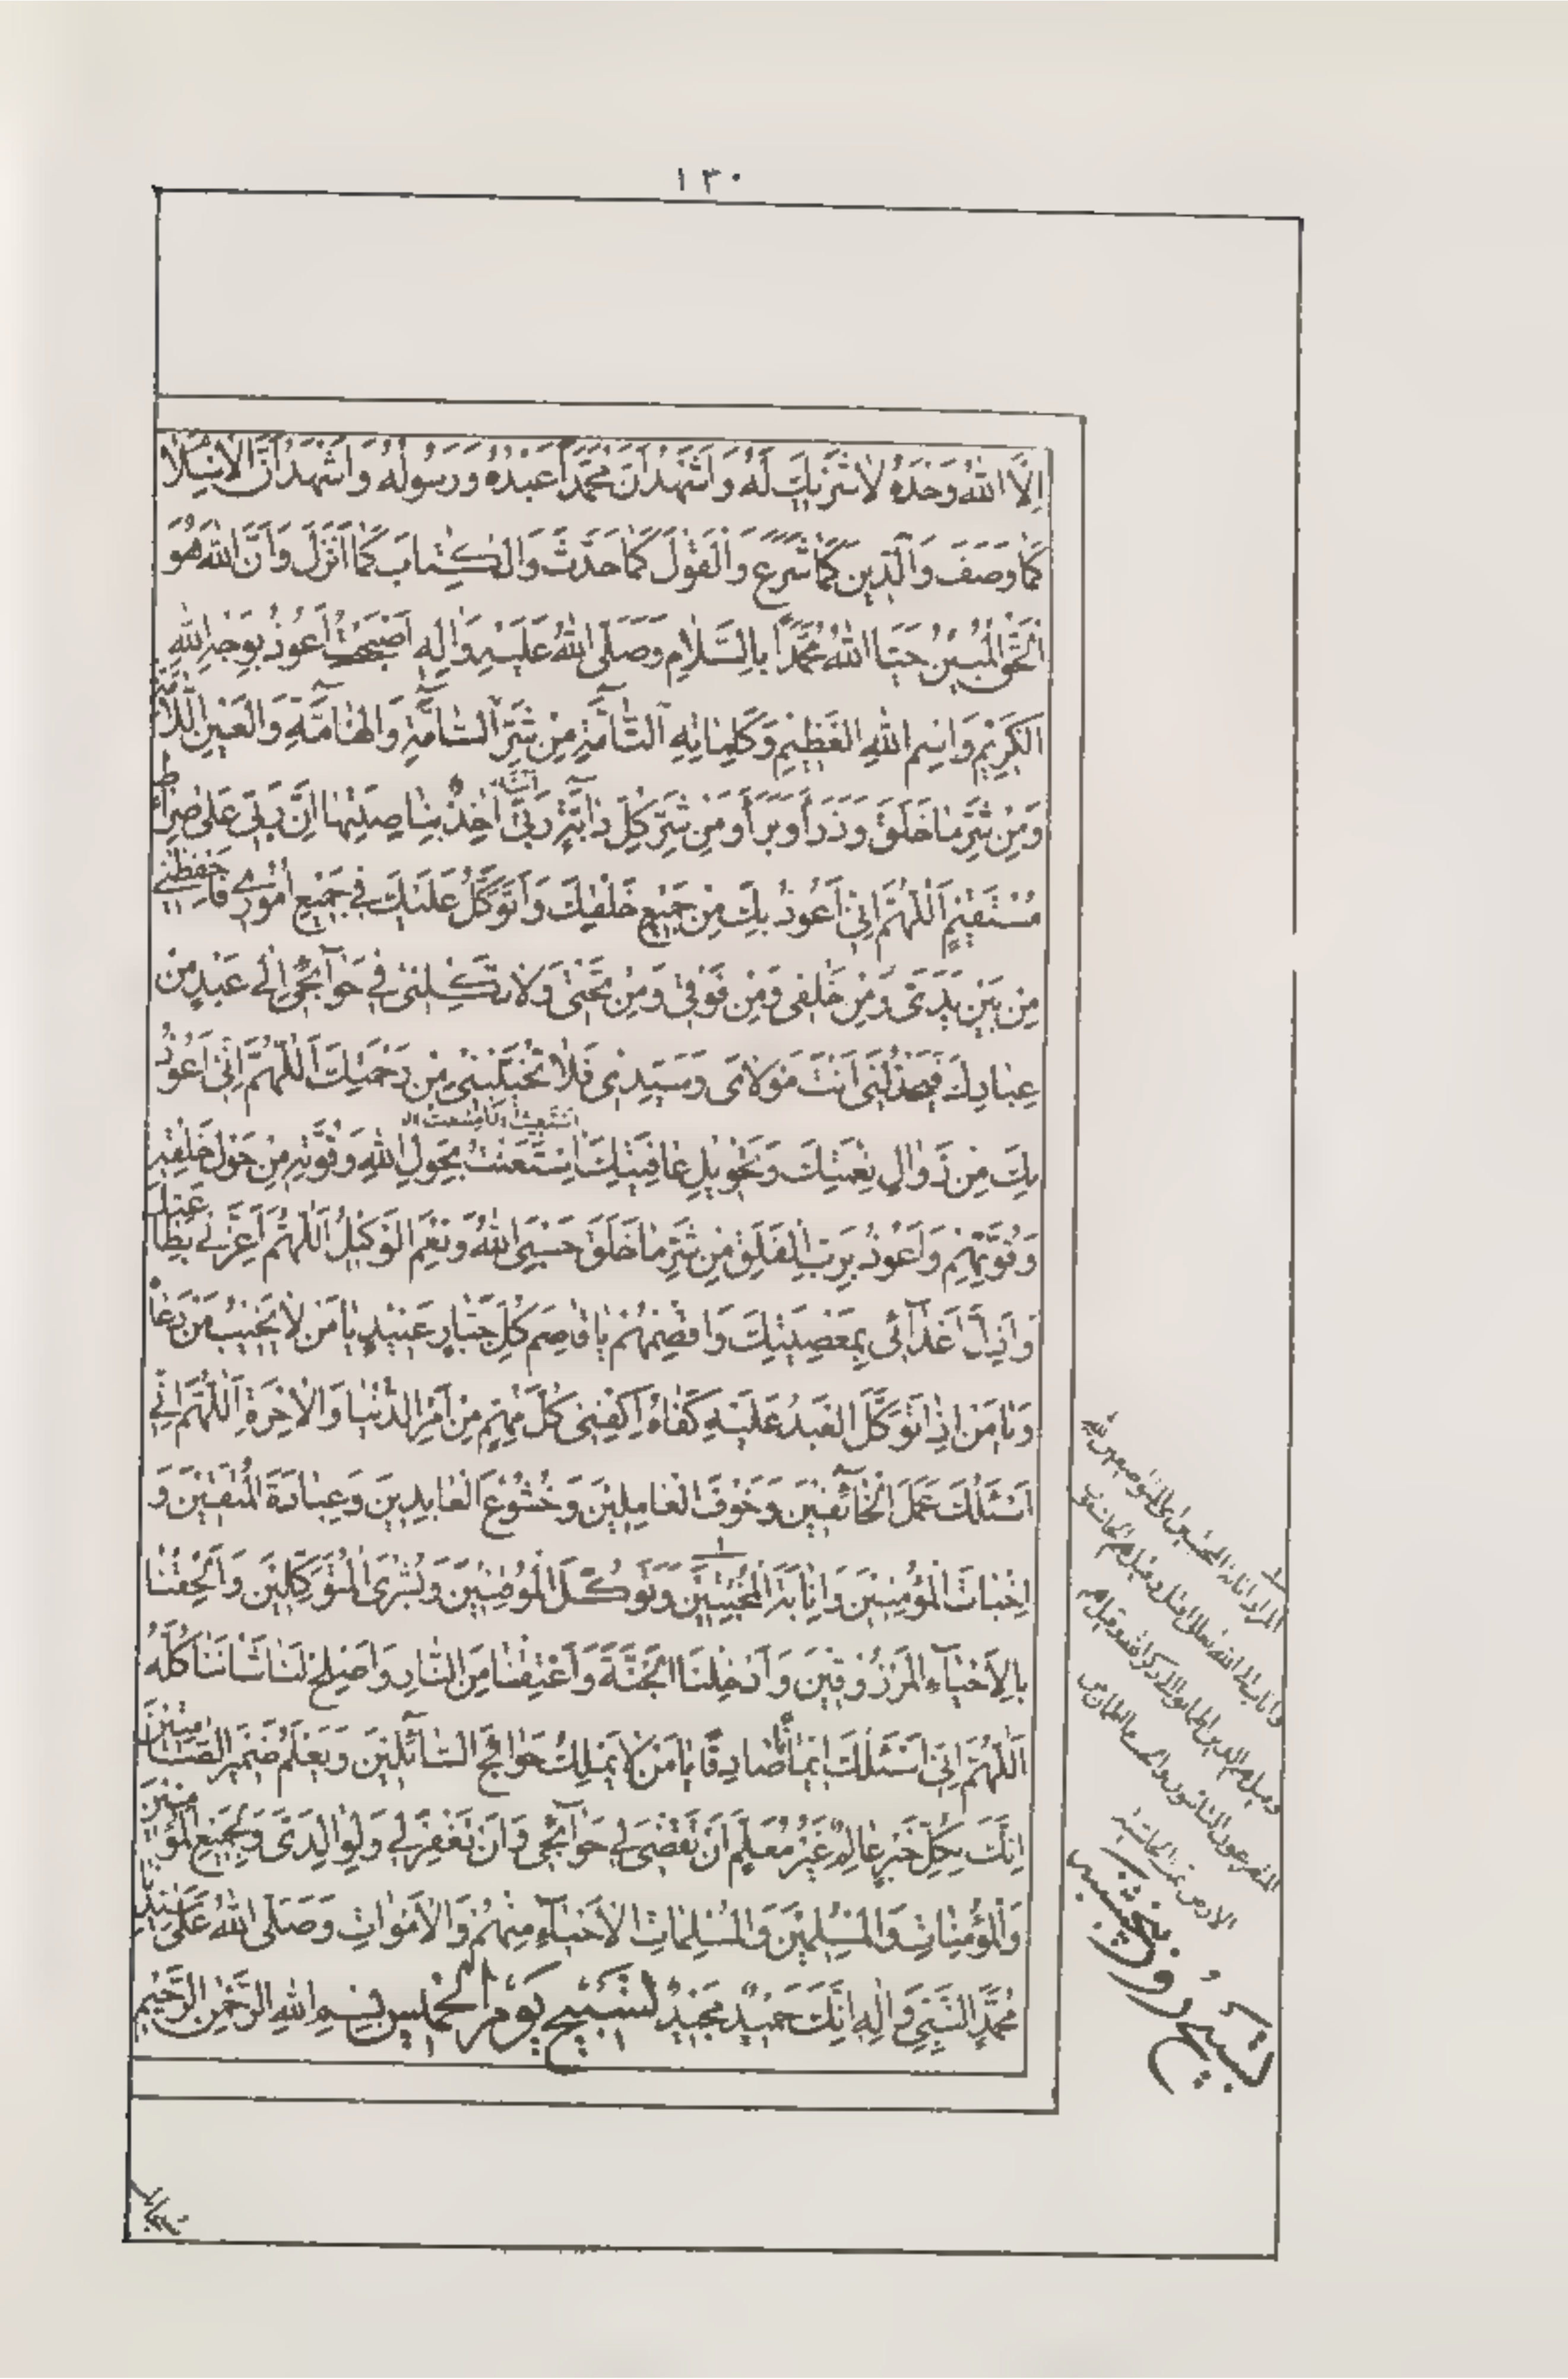 ١٣٠
اِلَّا اللهُ وَحْدَهُ لَا شَرِيكَ لَهُ وَاَشْهَدُ اَنَّ مُحَمَّداً عَبْدُهُ وَرَسُولُهُ وَاَشْهَدُ اَنَّ الْاِسْلَامَ
كَمَا وَصَفَ وَالدِّينَ كَمَا شَرَعَ وَالْقَوْلَ كَمَا حَدَّثَ وَالْكِتَابَ كَمَا اَنْزَلَ وَاَنَّ اللهَ هُوَ
الْحَقُّ الْمُبِينُ حَيَّا اللهُ مُحَمَّداً بِالسَّلَامِ وَصَلَّى اللهُ عَلَيْهِ وَاٰلِهِ اَصْبَحْتُ اَعُوذُ بِوَجْهِ اللهِ
الْكَرِيْمِ وَاسْمِ اللهِ الْعَظِيْمِ وَكَلِمَاتِهِ التَّامَّةِ مِنْ شَرِّ السَّامَّةِ وَالْهَامَّةِ وَالْعَيْنِ اللَّامَّةِ
وَمِنْ شَرِّ مَا خَلَقَ وَذَرَأَ وَبَرَأَ وَمِنْ شَرِّ كُلِّ دَابَّةٍ رَبِّي اٰخِذٌ بِنَاصِيَتِهَا اِنَّ رَبِّي عَلَى صِرَاطٍ
مُسْتَقِيْمٍ اَللّٰهُمَّ اِنِّي اَعُوذُ بِكَ مِنْ جَمِيْعِ خَلْقِكَ وَاَتَوَكَّلُ عَلَيْكَ فِي جَمِيْعِ اُمُوْرِي فَاحْفَظْنِي
مِنْ بَيْنِ يَدَيَّ وَمِنْ خَلْفِي وَمِنْ فَوْقِي وَمِنْ تَحْتِي وَلَا تَكِلْنِي فِي حَوَائِجِي اِلَى عَبْدٍ مِنْ
عِبَادِكَ فَيَخْذُلَنِي اَنْتَ مَوْلَايَ وَسَيِّدِي فَلَا تُخَيِّبْنِي مِنْ رَحْمَتِكَ اَللّٰهُمَّ اِنِّي اَعُوْذُ
بِكَ مِنْ زَوَالِ نِعْمَتِكَ وَتَحْوِيْلِ عَافِيَتِكَ اِسْتَعَنْتُ بِحَوْلِ اللهِ وَقُوَّتِهِ مِنْ حَوْلِ خَلْقِهِ
وَقُوَّتِهِمْ وَاَعُوْذُ بِرَبِّ الْفَلَقِ مِنْ شَرِّ مَا خَلَقَ حَسْبِيَ اللهُ وَنِعْمَ الْوَكِيْلُ اَللّٰهُمَّ اَعِزَّنِي بِطَاعَتِكَ
وَاَذِلَّ اَعْدَائِي بِمَعْصِيَتِكَ وَاقْصِمْهُمْ يَا قَاصِمَ كُلِّ جَبَّارٍ عَنِيْدٍ يَا مَنْ لَا يُخَيِّبُ مَنْ دَعَاهُ
وَيَا مَنْ اِذَا تَوَكَّلَ الْعَبْدُ عَلَيْهِ كَفَاهُ اِكْفِنِي كُلَّ مُهِمٍّ مِنْ اَمْرِ الدُّنْيَا وَالْاٰخِرَةِ اَللّٰهُمَّ اِنِّي
اَسْئَلُكَ عَمَلَ الْخَائِفِيْنَ وَخَوْفَ الْعَامِلِيْنَ وَخُشُوْعَ الْعَابِدِيْنَ وَعِبَادَةَ الْمُتَّقِيْنَ وَ
اِخْبَاتَ الْمُؤْمِنِيْنَ وَاِنَابَةَ الْمُخْبِتِيْنَ وَتَوَكُّلَ الْمُوْقِنِيْنَ وَبُشْرَى الْمُتَوَكِّلِيْنَ وَاَلْحِقْنَا
بِالْاَحْيَاءِ الْمَرْزُوقِيْنَ وَاَدْخِلْنَا الْجَنَّةَ وَاَعْتِقْنَا مِنَ النَّارِ وَاَصْلِحْ لَنَا شَانَنَا كُلَّهُ
اَللّٰهُمَّ اِنِّي اَسْئَلُكَ اِيْمَاناً صَادِقاً يَا مَنْ يَمْلِكُ حَوَائِجَ السَّائِلِيْنَ وَيَعْلَمُ ضَمِيْرَ الصَّامِتِيْنَ
اِنَّكَ بِكُلِّ خَيْرٍ عَالِمٌ غَيْرُ مُعَلَّمٍ اَنْ تَقْضِيَ لِي حَوَائِجِي وَاَنْ تَغْفِرَ لِي وَلِوَالِدَيَّ وَلِجَمِيْعِ الْمُؤْمِنِيْنَ
وَالْمُؤْمِنَاتِ وَالْمُسْلِمِيْنَ وَالْمُسْلِمَاتِ الْاَحْيَاءِ مِنْهُمْ وَالْاَمْوَاتِ وَصَلَّى اللهُ عَلَى سَيِّدِنَا
مُحَمَّدٍ النَّبِيِّ وَاٰلِهِ اِنَّكَ حَمِيْدٌ مَجِيْدٌ تَسْبِيْحُ يَوْمِ الْخَمِيْسِ بِسْمِ اللهِ الرَّحْمٰنِ الرَّحِيْمِ
تسبيح روز پنجشنبه